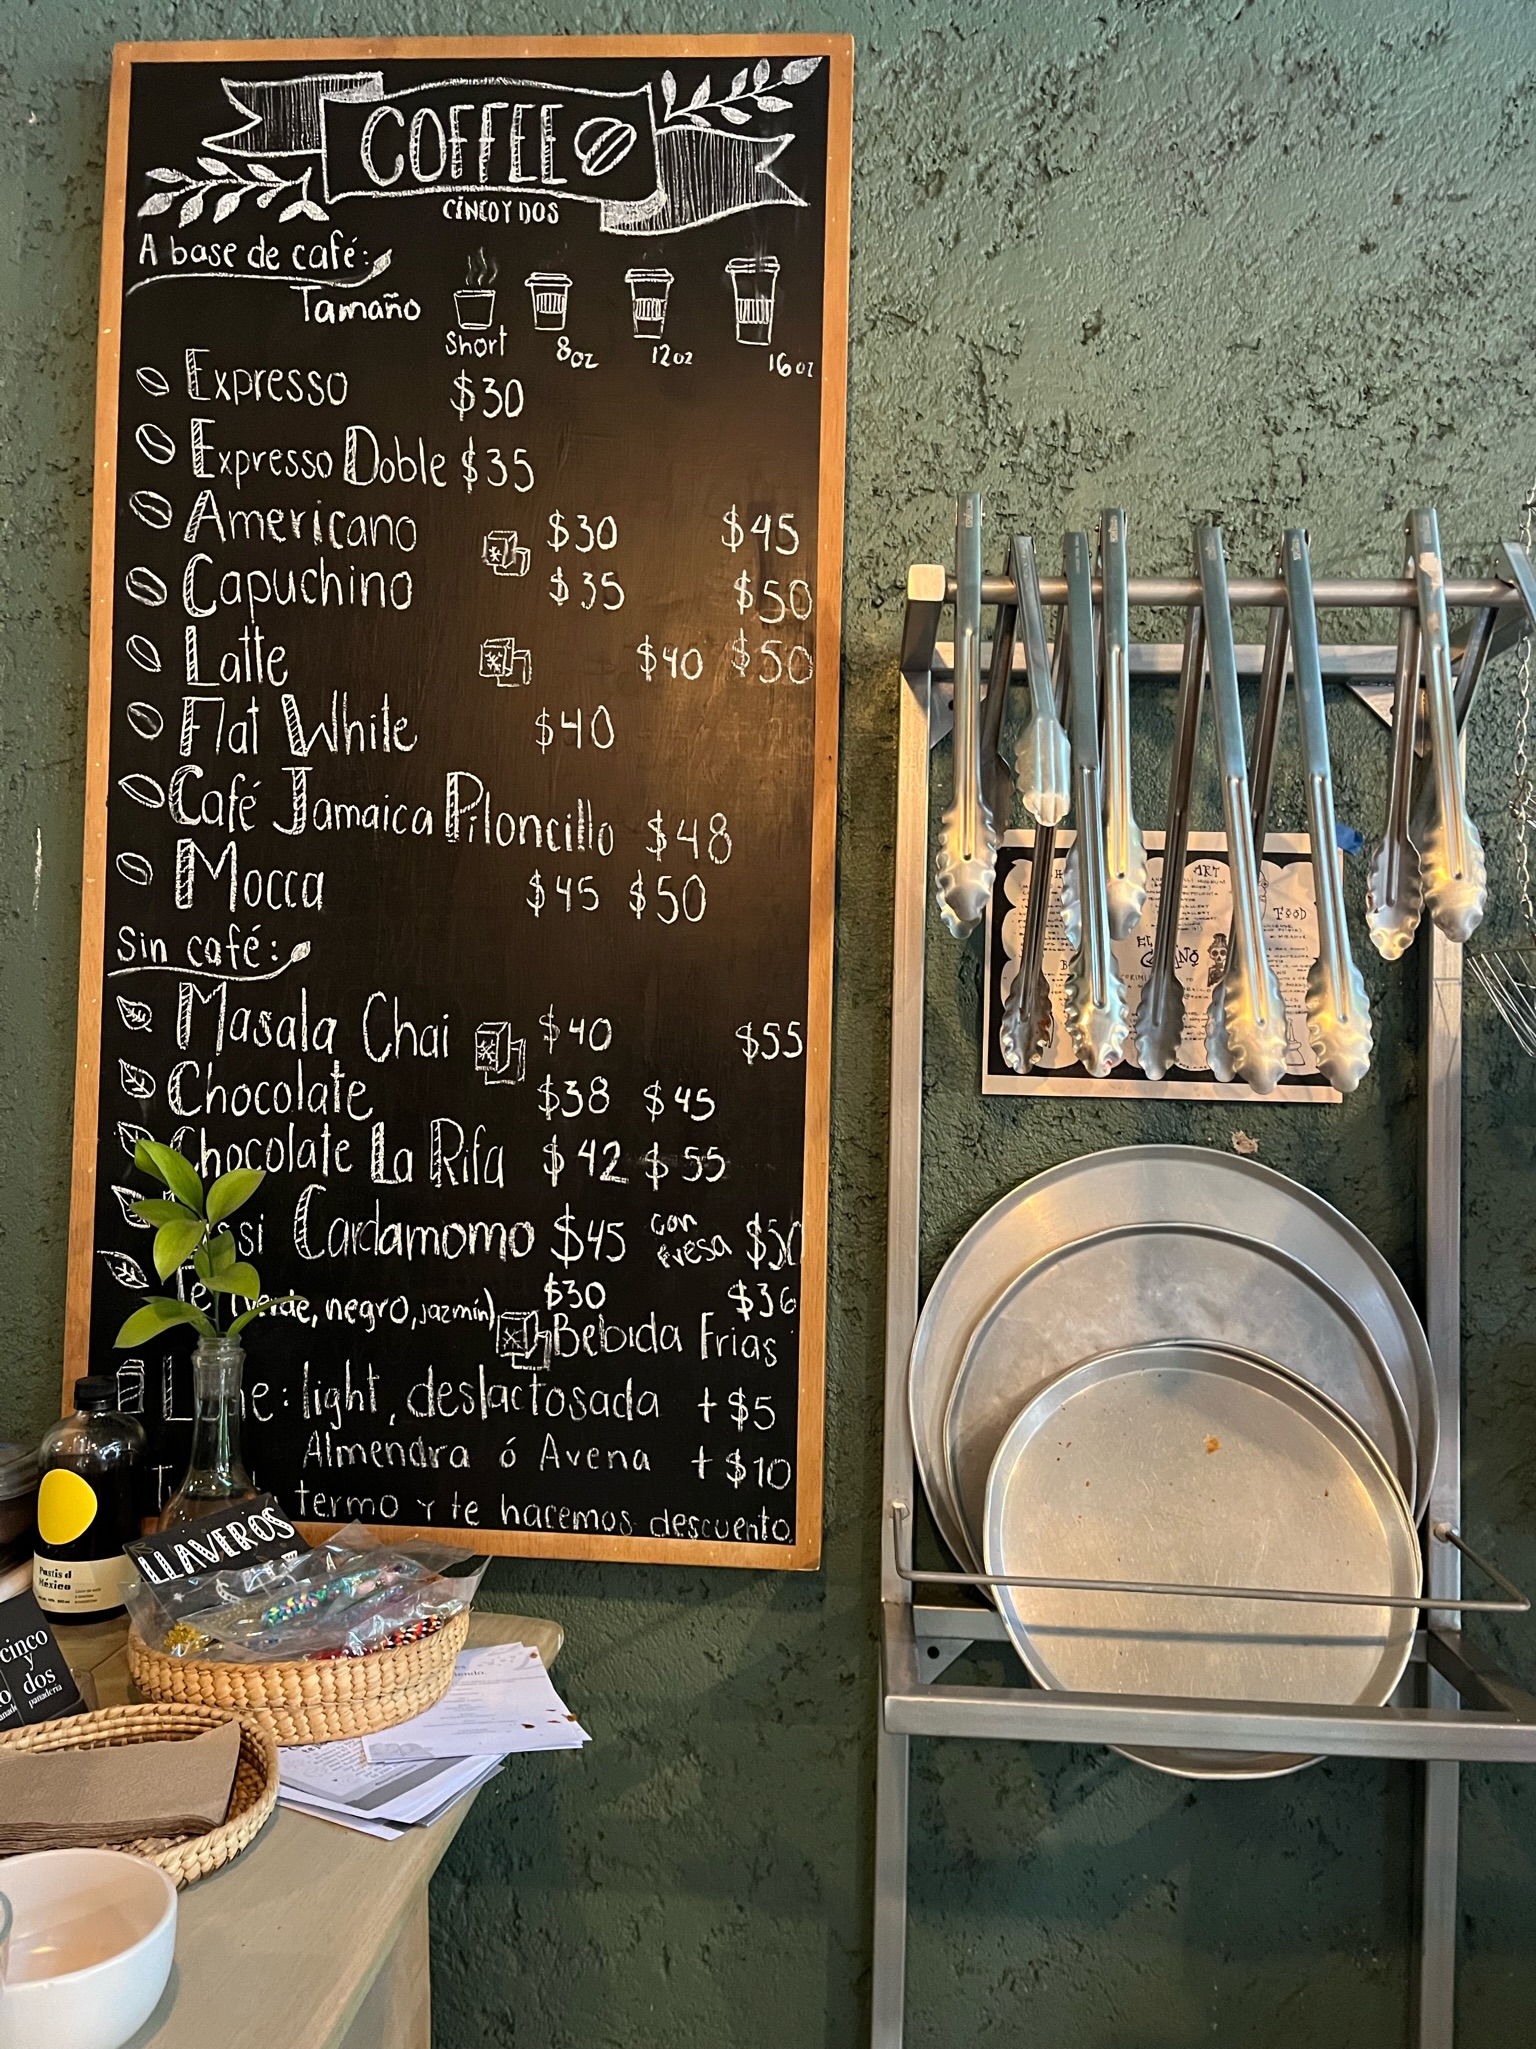 COFFEE
CINCO Y DOS
A base de café:
Tamaño
Short 8oz 12oz 16oz
Expresso $30
Expresso Doble $35
Americano $30 $45
Capuchino $35 $50
Latte $40 $50
Flat White $40
Café Jamaica Piloncillo $48
Mocca $45 $50
Sin café:
Masala Chai $40 $55
Chocolate $38 $45
Chocolate La Rifa $42 $55
Cardamomo $45 con fresa $50
Te (verde, negro, jazmín) $30 $36
Bebida Frias
light, deslactosada +$5
Almendra ó Avena +$10
termo y te hacemos descuento.
LLAVEROS
Pastis d
México
cinco
y
dos
panadería
ART
FOOD